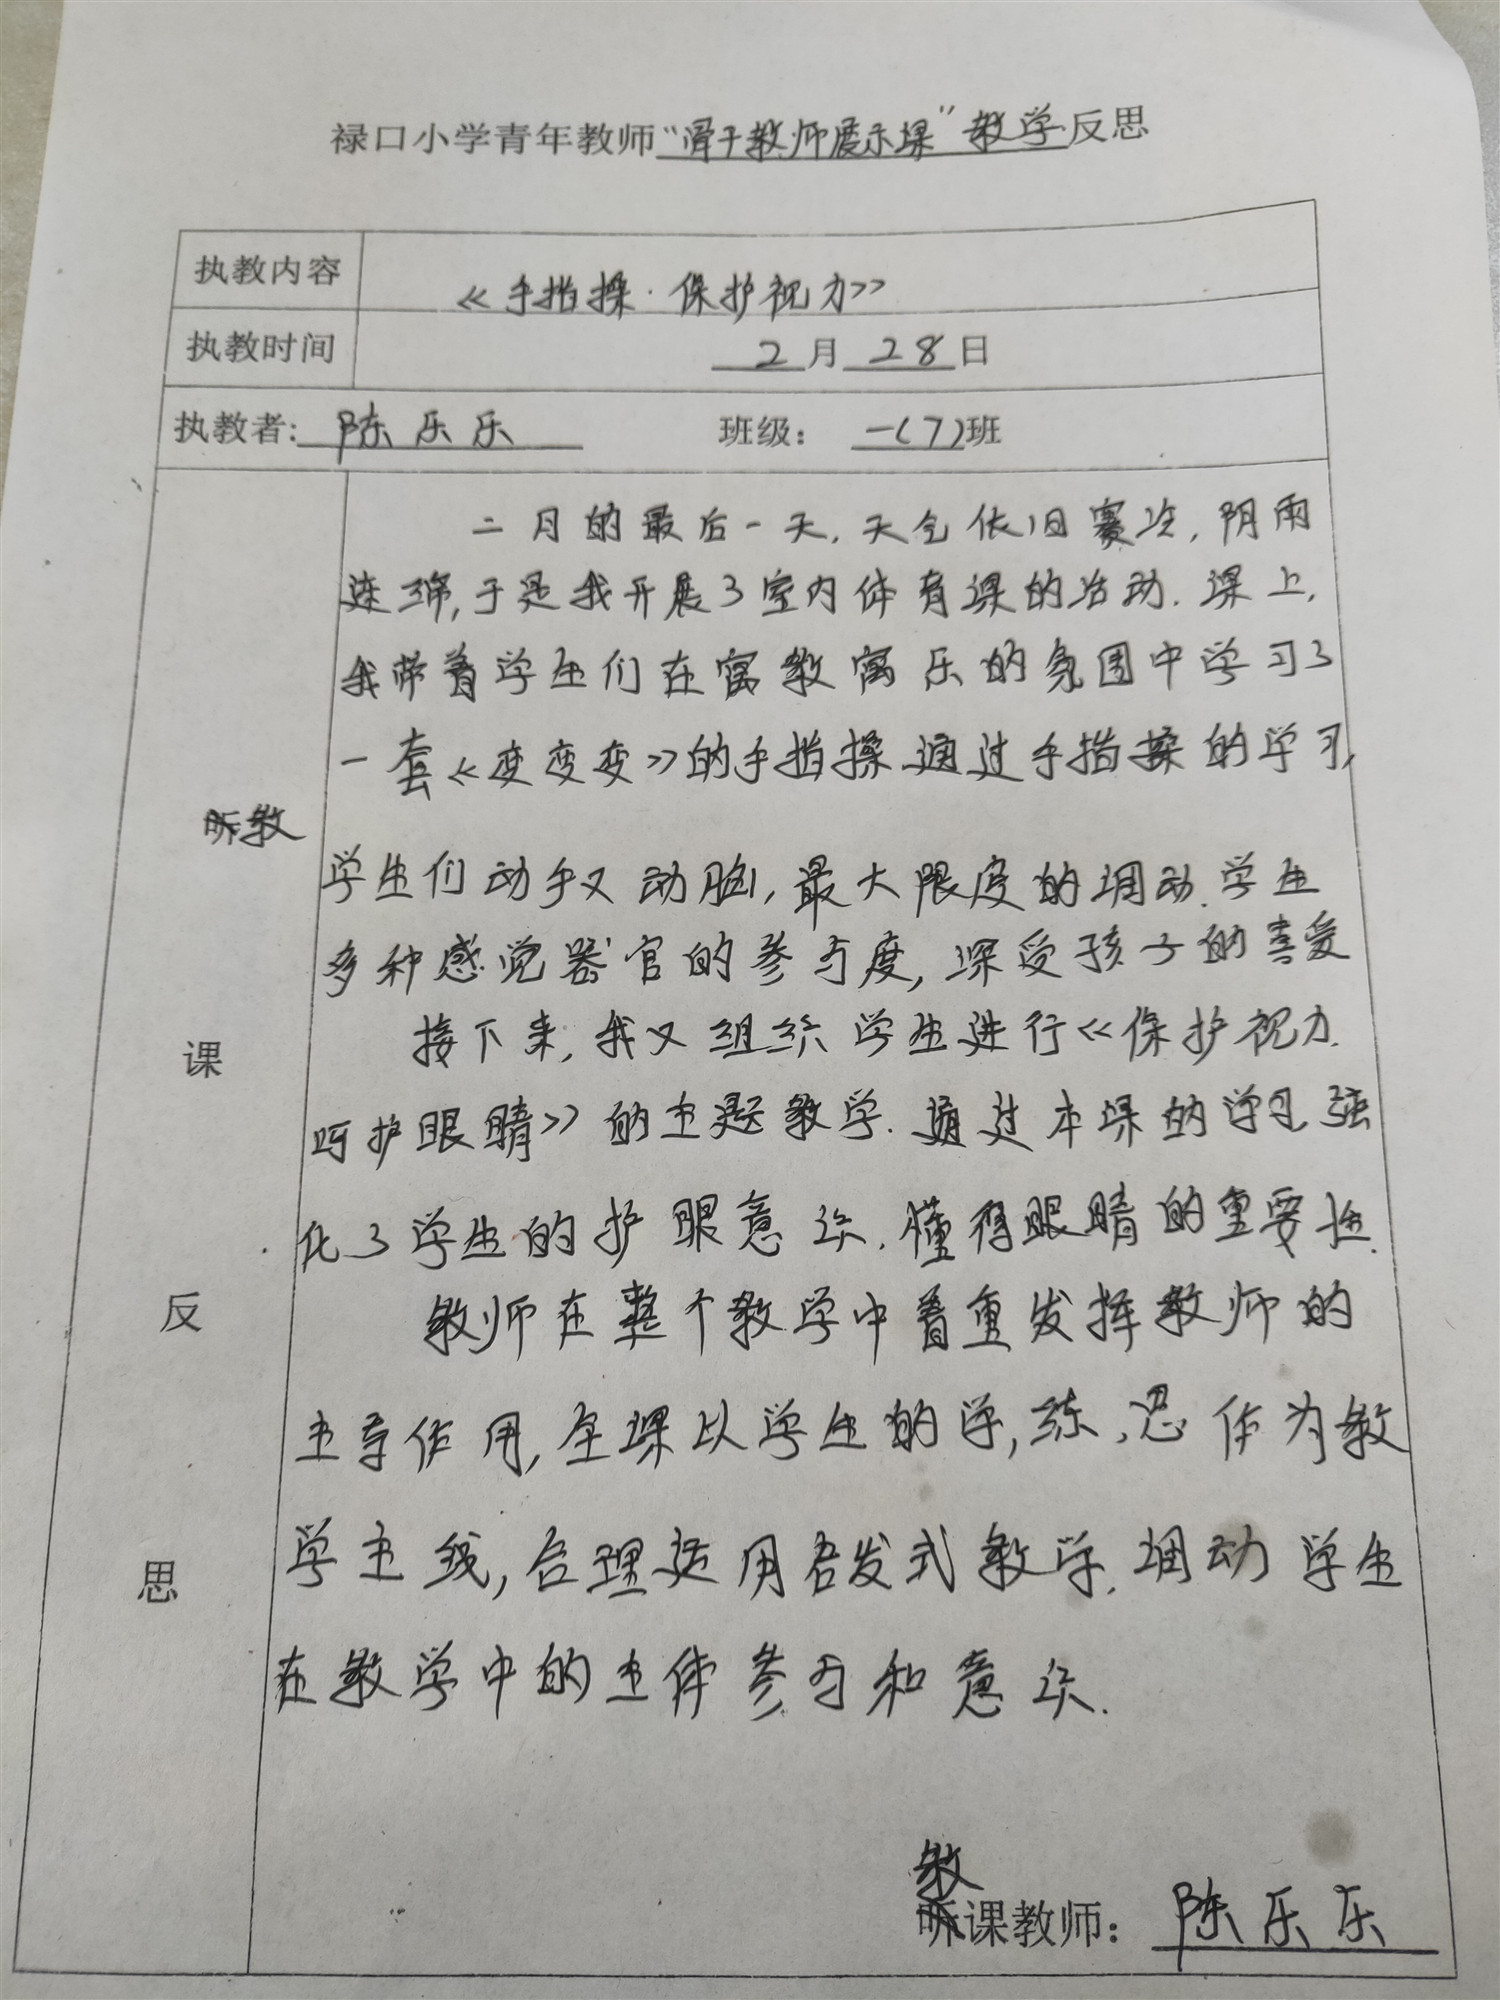 禄口小学青年教师“骨干教师展示课”教学反思
执教内容 《手指操·保护视力》
执教时间 2月28日
执教者: 陈乐乐 班级: 一(7)班
二月的最后一天,天气依旧寒冷,阴雨
连绵,于是我开展了室内体育课的活动.课上,
我带着学生们在寓教寓乐的氛围中学习了
一套《变变变》的手指操.通过手指操的学习,
教
学生们动手又动脑,最大限度的调动学生
多种感觉器官的参与度,深受孩子的喜爱
接下来,我又组织学生进行《保护视力
课
呵护眼睛》的主题教学.通过本课的学习,强
化了学生的护眼意识.懂得眼睛的重要性.
教师在整个教学中着重发挥教师的
反
主导作用,全课以学生的学,练,思作为教
学主线,合理运用启发式教学.调动学生
思
在教学中的主体参与和意识.
教课教师: 陈乐乐